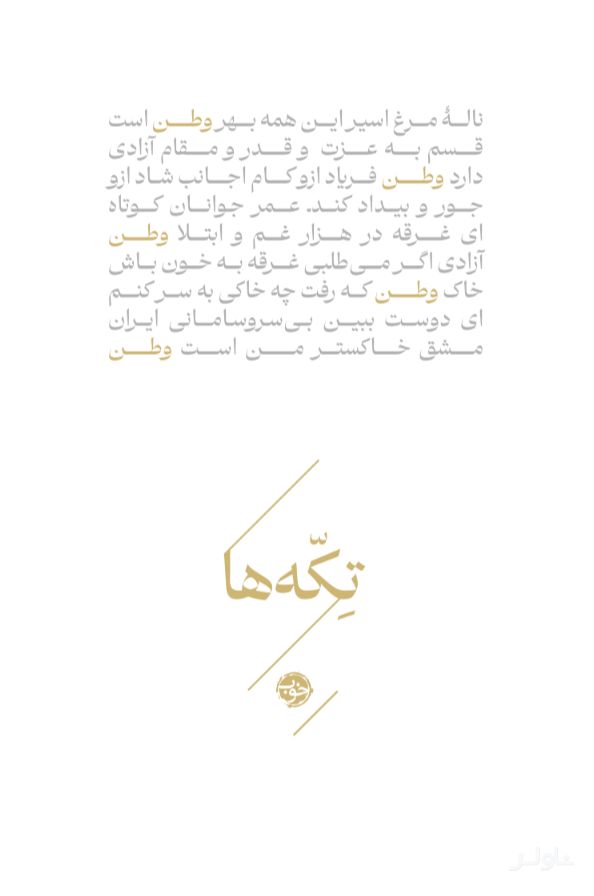 نالـهٔ مـرغ اسیر ایـن همه بـهر وطـن است
قـسم بـه عـزت و قـدر و مـقام آزادی
دارد وطـن فـریاد ازو کـام اجـانب شـاد ازو
جـور و بـیداد کـند. عـمر جوانـان کـوتاه
ای غـرقه در هـزار غـم و ابـتلا وطـن
آزادی اگـر مـی‌طلبی غـرقه بـه خـون بـاش
خاک وطـن کـه رفت چه خاکی به سـر کـنم
ای دوسـت ببین بـی‌سروسامـانی ایـران
مـشق خـاکستر مـن اسـت وطـن
تِکّه‌ها
خوب